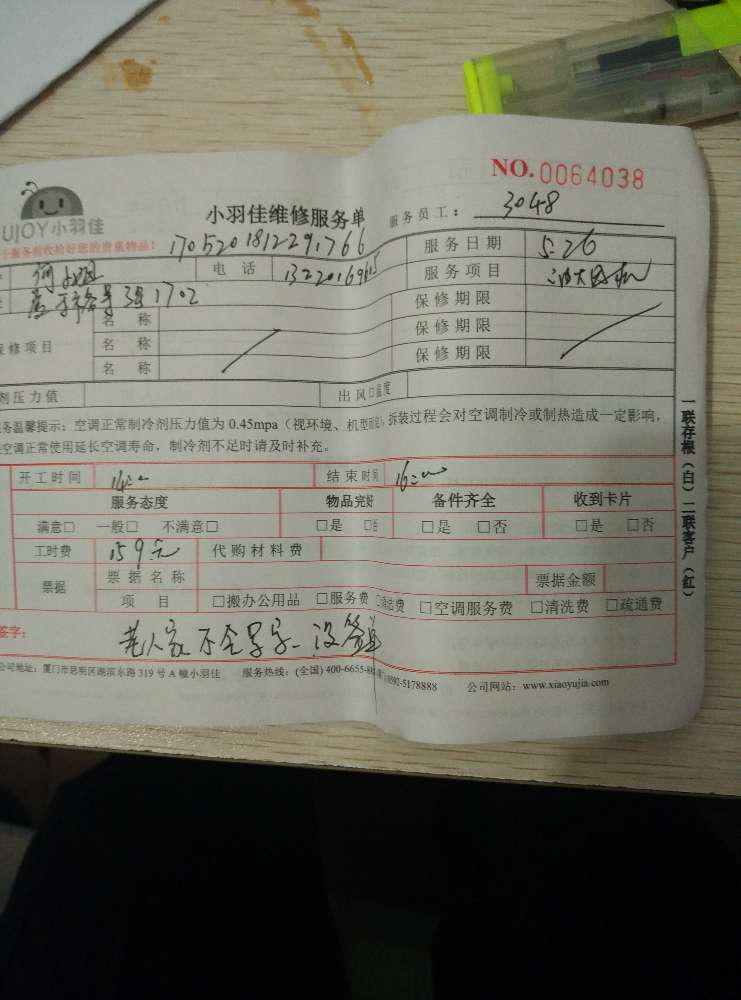 NO.0064038
UJOY小羽佳
小羽佳维修服务单 服务员工： 3048
服务前收检好您的贵重物品！ 1705201812291766
电 话 服务日期 5.26
服务项目
3 1702 保修期限
保修项目 名 称 保修期限
名 称 保修期限
名 称
剂压力值 出风口温度
务温馨提示：空调正常制冷剂压力值为 0.45mpa（视环境、机型而定），拆装过程会对空调制冷或制热造成一定影响，
空调正常使用延长空调寿命，制冷剂不足时请及时补充。
开工时间 14: 结束时间 16:
服务态度 物品完好 备件齐全 收到卡片
满意□ 一般□ 不满意□ □是 □否 □是 □否 □是 □否
工时费 159元 代购材料费
票据 票据名称 票据金额
项 目 □搬办公用品 □服务费 □空调服务费 □清洗费 □疏通费
签字： 老人家不会写字 没签单
公司地址：厦门市思明区湖滨东路 319 号 A 幢小羽佳 服务热线：(全国) 400-6655- 0592-5178888 公司网站：www.xiaoyujia.com
一联存根（白）二联客户（红）